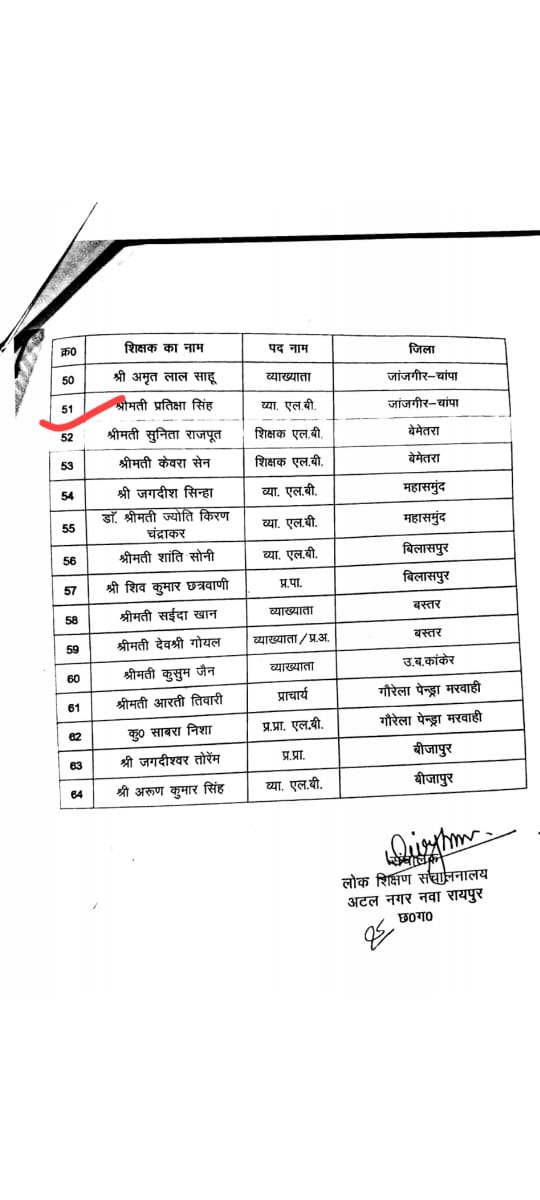 क्र0 शिक्षक का नाम पद नाम जिला
50 श्री अमृत लाल साहू व्याख्याता जांजगीर–चांपा
51 श्रीमती प्रतिक्षा सिंह व्या. एल.बी. जांजगीर–चांपा
52 श्रीमती सुनिता राजपूत शिक्षक एल.बी. बेमेतरा
53 श्रीमती केवरा सेन शिक्षक एल.बी. बेमेतरा
54 श्री जगदीश सिन्हा व्या. एल.बी. महासमुंद
55 डॉ. श्रीमती ज्योति किरण चंद्राकर व्या. एल.बी. महासमुंद
56 श्रीमती शांति सोनी व्या. एल.बी. बिलासपुर
57 श्री शिव कुमार छत्रवाणी प्र.पा. बिलासपुर
58 श्रीमती सईदा खान व्याख्याता बस्तर
59 श्रीमती देवश्री गोयल व्याख्याता / प्र.अ. बस्तर
60 श्रीमती कुसुम जैन व्याख्याता उ.ब.कांकेर
61 श्रीमती आरती तिवारी प्राचार्य गौरेला पेन्ड्रा मरवाही
62 कु0 साबरा निशा प्र.प्रा. एल.बी. गौरेला पेन्ड्रा मरवाही
63 श्री जगदीश्वर तोरेंम प्र.प्रा. बीजापुर
64 श्री अरूण कुमार सिंह व्या. एल.बी. बीजापुर
संचालक
लोक शिक्षण संचालनालय
अटल नगर नवा रायपुर
छ0ग0